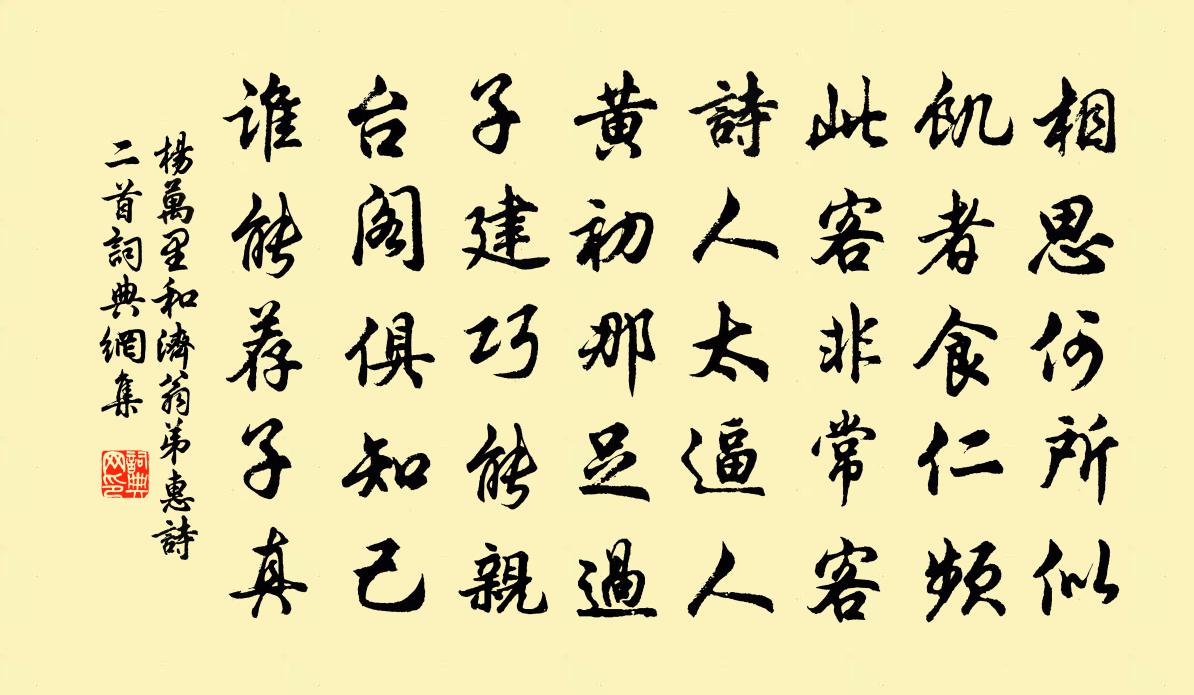 相思何所似
飢者食仁頻
此客非常客
詩人太逼人
黄初那足過
子建巧能親
台阁俱知己
谁能荐子真
楊萬里和濟翁弟惠詩
二首詞典網集
詞典网印